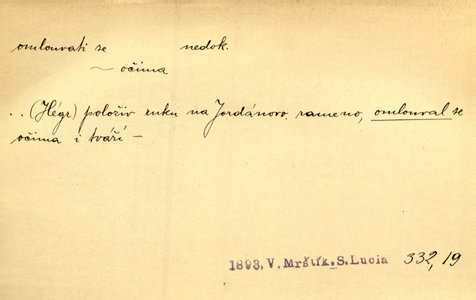 omlouvati se nedok.
~ očima
.. (Hégr) položiv ruku na Jordánovo rameno, omlouval se
očima i tváří —
1893. V. Mrštík. S. Lucia 332, 19